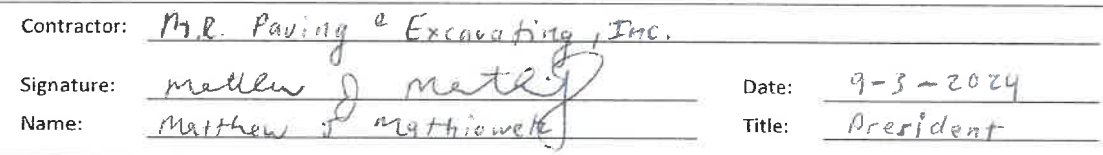 Contractor: M.R. Paving & Excavating, Inc.
Signature: Matthew J Math Date: 9-3-2024
Name: Matthew J Mathiowetz Title: President